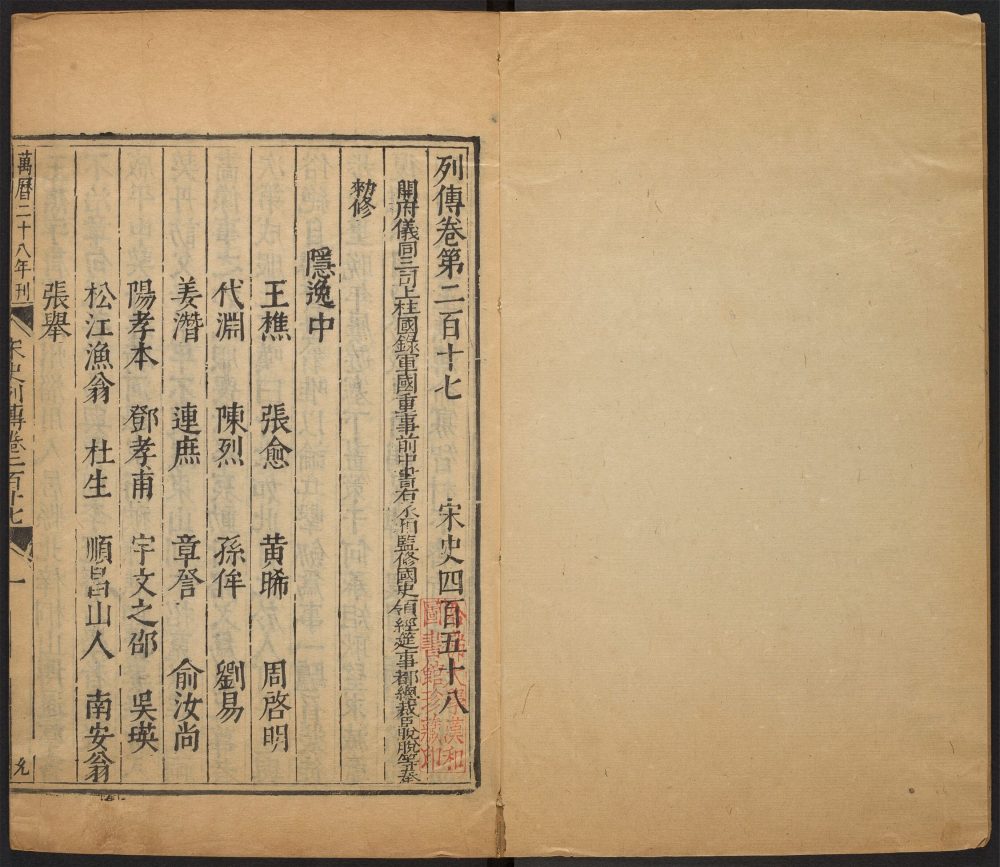 列傳卷第二百十七 宋史四百五十八
開府儀同三司上柱國錄軍國重事前中書右丞相監修國史領經筵事都總裁臣脫脫等奉
勑修
隱逸中
王樵 張愈 黄晞 周啓明
代淵 陳烈 孫侔 劉易
姜潛 連庶 章詧 俞汝尚
陽孝本 鄧孝甫 宇文之邵 吳瑛
松江漁翁 杜生 順昌山人 南安翁
張舉
萬曆二十八年刊
宋史列傳卷二百十七 一
哈佛大學漢和
圖書館珍藏印